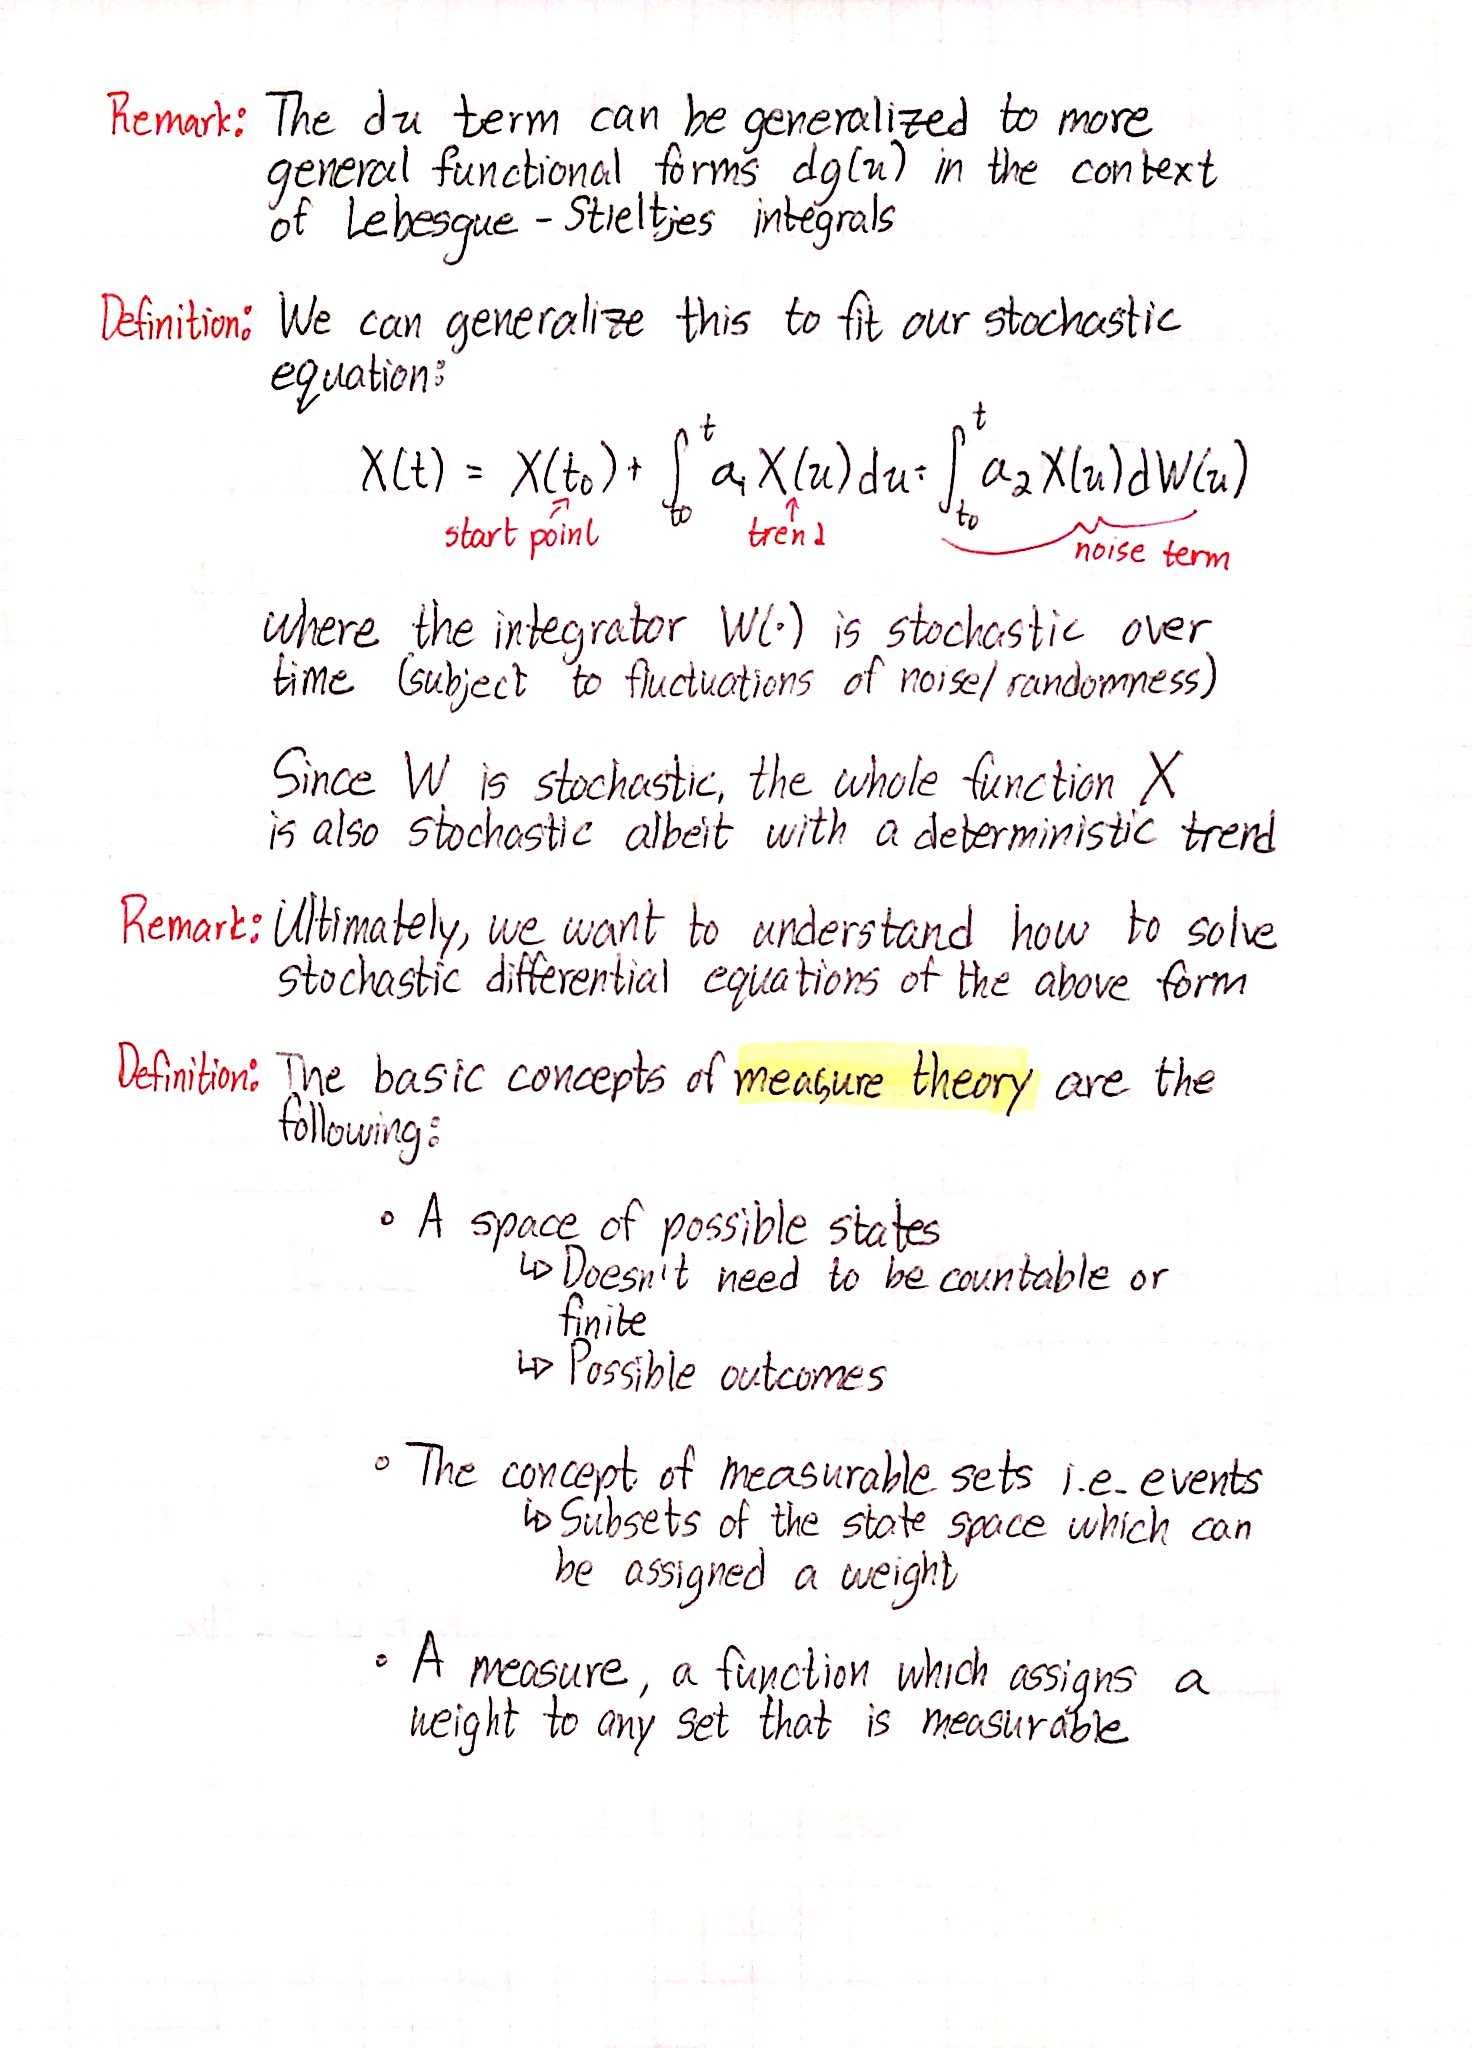 Remark: The du term can be generalized to more
general functional forms dg(u) in the context
of Lebesgue - Stieltjes integrals
Definition: We can generalize this to fit our stochastic
equation:
X(t) = X(t₀) + ∫_{t₀}^{t} a₁ X(u) du + ∫_{t₀}^{t} a₂ X(u) dW(u)
start point trend noise term
where the integrator W(·) is stochastic over
time (subject to fluctuations of noise/randomness)
Since W is stochastic, the whole function X
is also stochastic albeit with a deterministic trend
Remark: Ultimately, we want to understand how to solve
stochastic differential equations of the above form
Definition: The basic concepts of measure theory are the
following:
◦ A space of possible states
↳ Doesn't need to be countable or
finite
↳ Possible outcomes
◦ The concept of measurable sets i.e. events
↳ Subsets of the state space which can
be assigned a weight
◦ A measure, a function which assigns a
weight to any set that is measurable